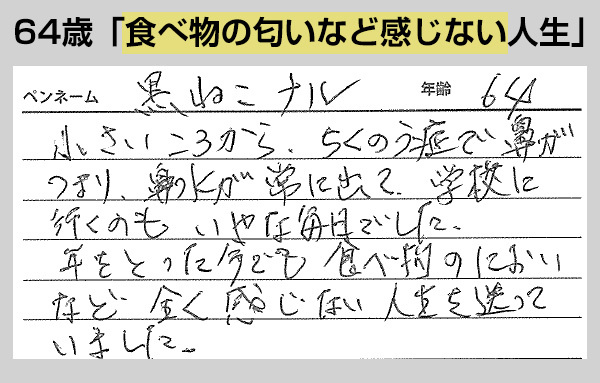 64歳「食べ物の匂いなど感じない人生」
ペンネーム 黒ねこナル 年齢 64
小さいころから、ちくのう症で鼻が
つまり、鼻水が常に出て、学校に
行くのも いやな毎日でした。
年をとった今でも 食べ物のにおい
など 全く感じない人生を送って
いました。